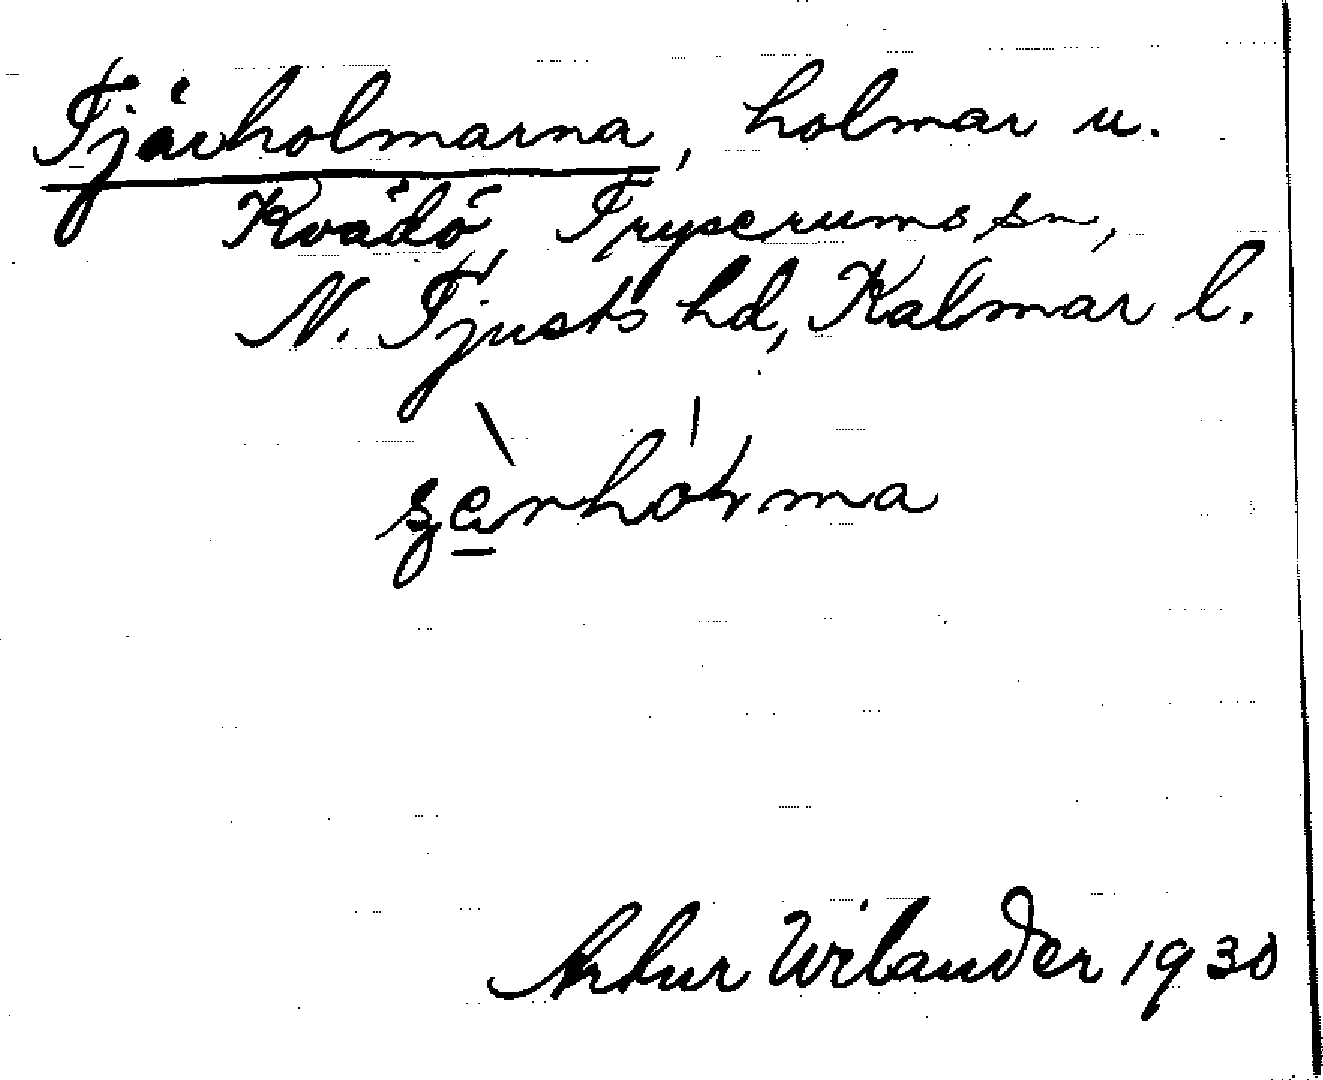 Tjärholmarna, holmar u.
Kvädö, Tryserums sn,
N. Tjusts hd, Kalmar l.
Artur Wilander 1930